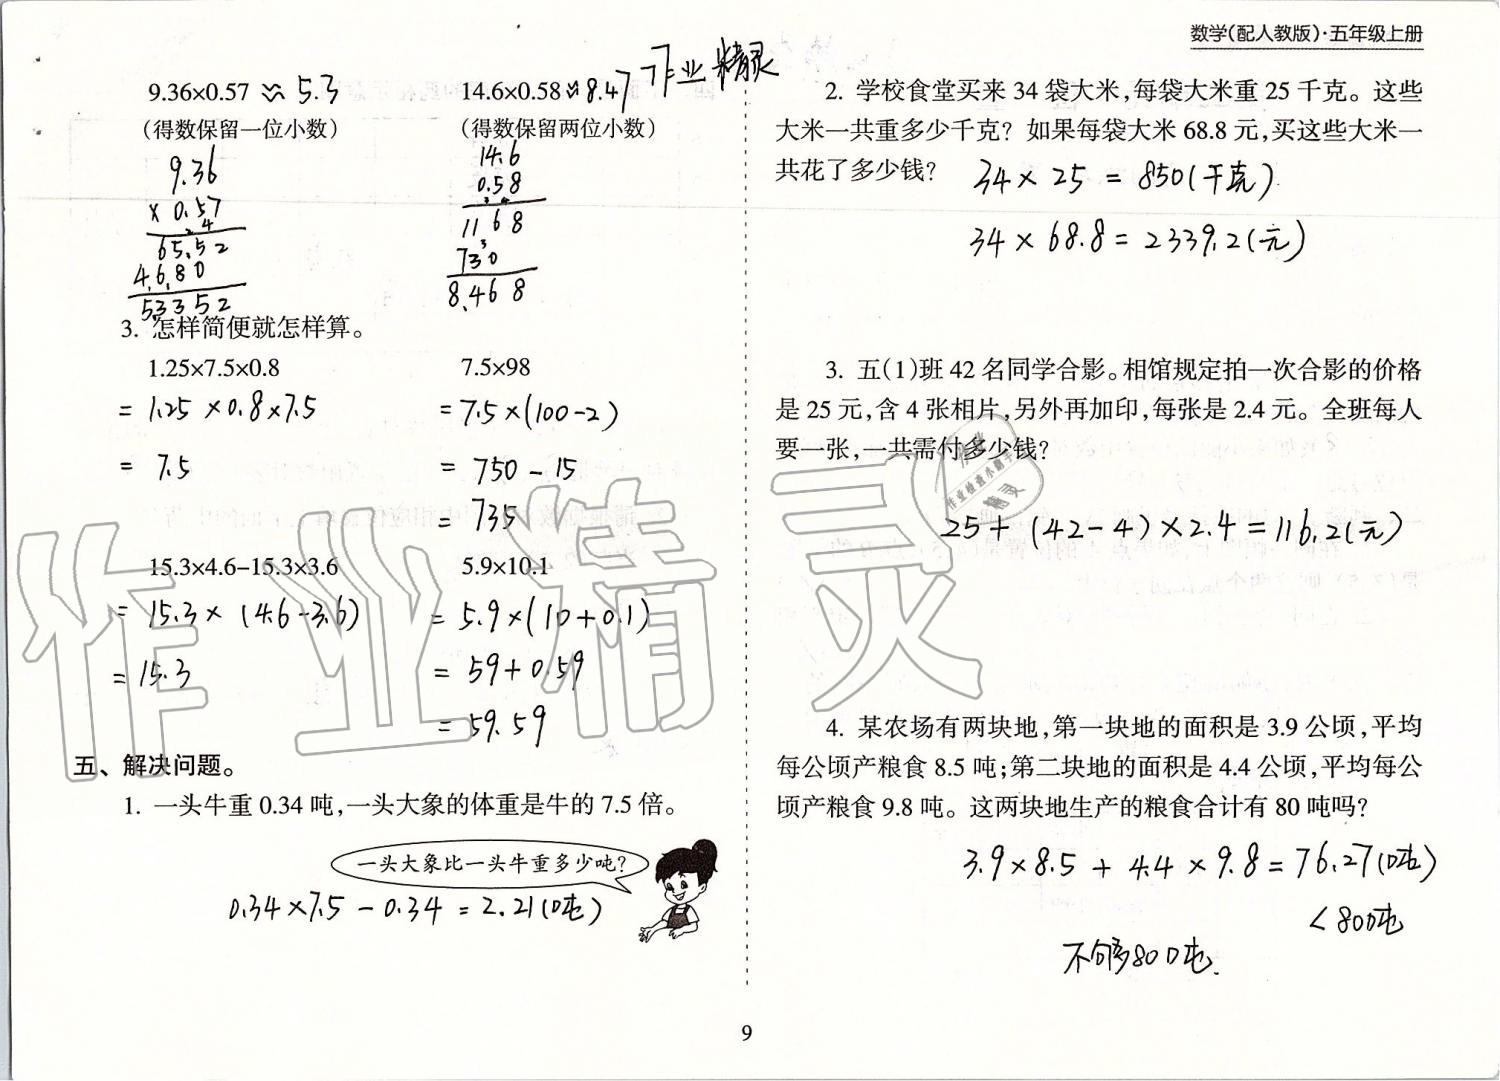 数学(配人教版)·五年级上册
9.36×0.57 ≈ 5.3
(得数保留一位小数)
9.36
× 0.57
2 4
65.52
4.680
53352
14.6×0.58 ≈ 8.47 作业精灵
(得数保留两位小数)
14.6
0.58
1168
730
8.468
3. 怎样简便就怎样算。
1.25×7.5×0.8
= 1.25 ×0.8×7.5
= 7.5
7.5×98
=7.5×(100-2)
= 750 - 15
= 735
15.3×4.6-15.3×3.6
= 15.3× (4.6-3.6)
= 15.3
5.9×10.1
= 5.9×(10+0.1)
= 59+0.59
= 59.59
五、解决问题。
1. 一头牛重 0.34 吨,一头大象的体重是牛的 7.5 倍。
一头大象比一头牛重多少吨?
0.34×7.5 - 0.34 = 2.21(吨)
2. 学校食堂买来 34 袋大米,每袋大米重 25 千克。这些
大米一共重多少千克? 如果每袋大米 68.8 元,买这些大米一
共花了多少钱?
34 × 25 = 850(千克)
34 × 68.8 = 2339.2(元)
3. 五(1)班 42 名同学合影。相馆规定拍一次合影的价格
是 25 元,含 4 张相片,另外再加印,每张是 2.4 元。全班每人
要一张,一共需付多少钱?
25+ (42-4)×2.4=116.2(元)
4. 某农场有两块地,第一块地的面积是 3.9 公顷,平均
每公顷产粮食 8.5 吨;第二块地的面积是 4.4 公顷,平均每公
顷产粮食 9.8 吨。这两块地生产的粮食合计有 80 吨吗?
3.9×8.5 + 4.4 ×9.8=76.27(吨)
<80吨
不够80吨.
作业精灵
9